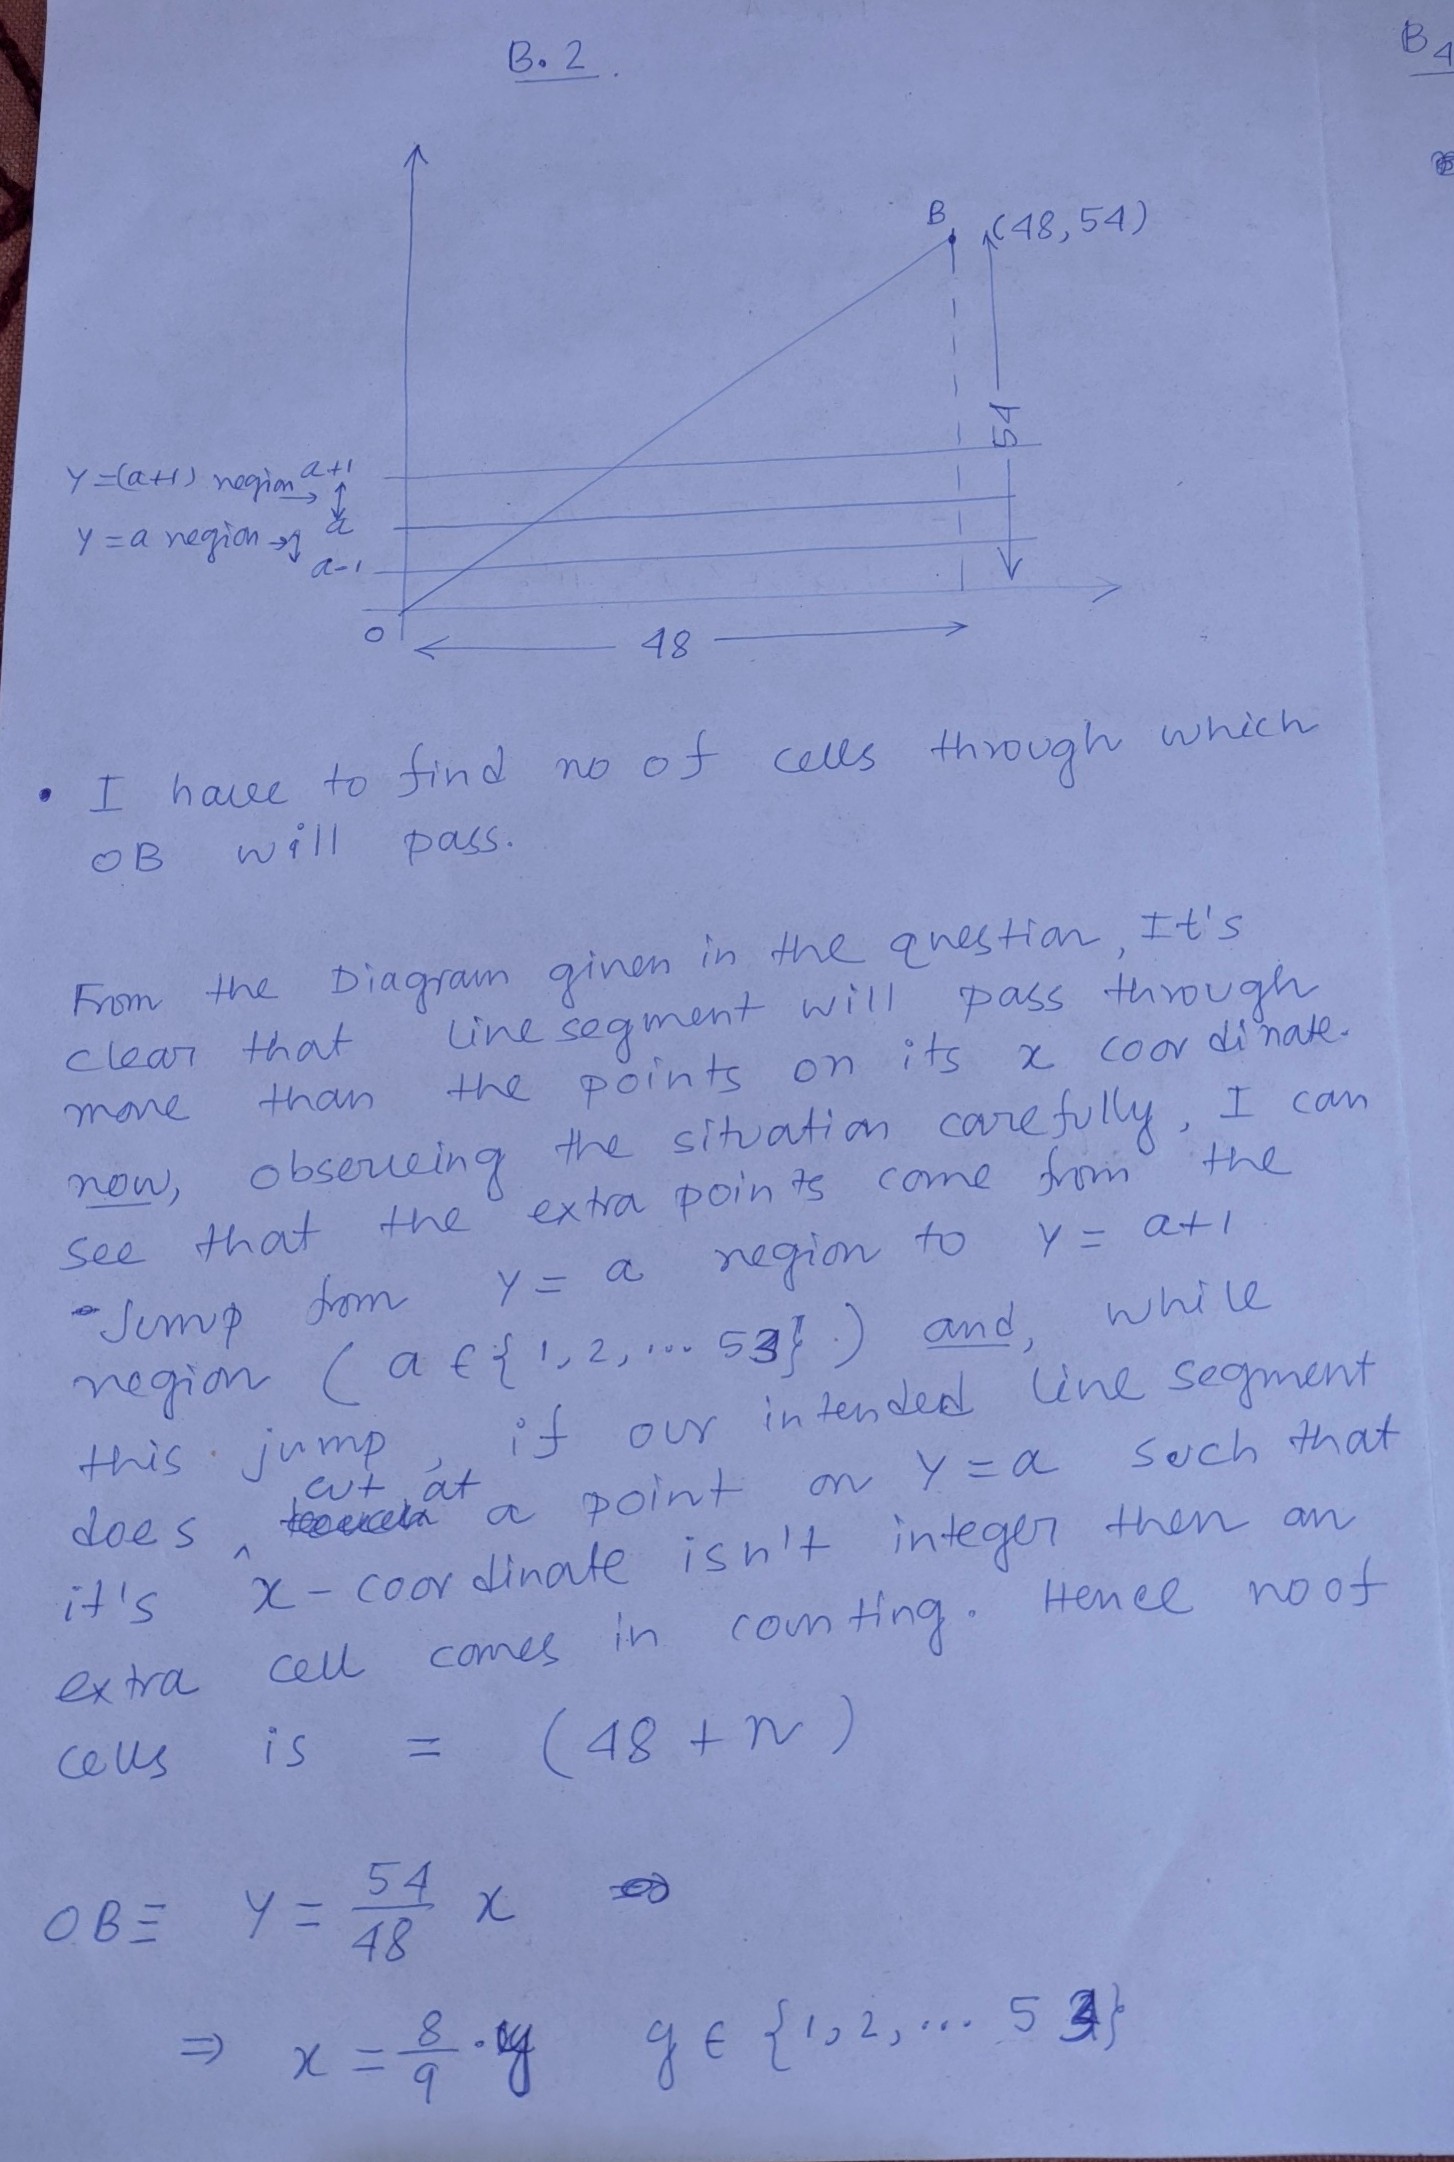 B. 2.
B4
B (48,54)
54
Y=(a+1) region a+1
Y=a region a
a-1
O
48
• I have to find no of cells through which
OB will pass.
From the Diagram given in the question, It's
clear that line segment will pass through
more than the points on its x coordinate.
now, observeing the situation carefully, I can
see that the extra points come from the
Jump from Y = a region to Y = a+1
region (a ∈ {1, 2, ... 53}.) and, while
this jump, if our intended line segment
does cut at a point on Y = a such that
it's x-coordinate isn't integer then an
extra cell comes in counting. Hence no of
cells is = (48 + n)
OB ≡ Y = 54/48 x
⇒ x = 8/9 · y y ∈ {1, 2, ... 53}